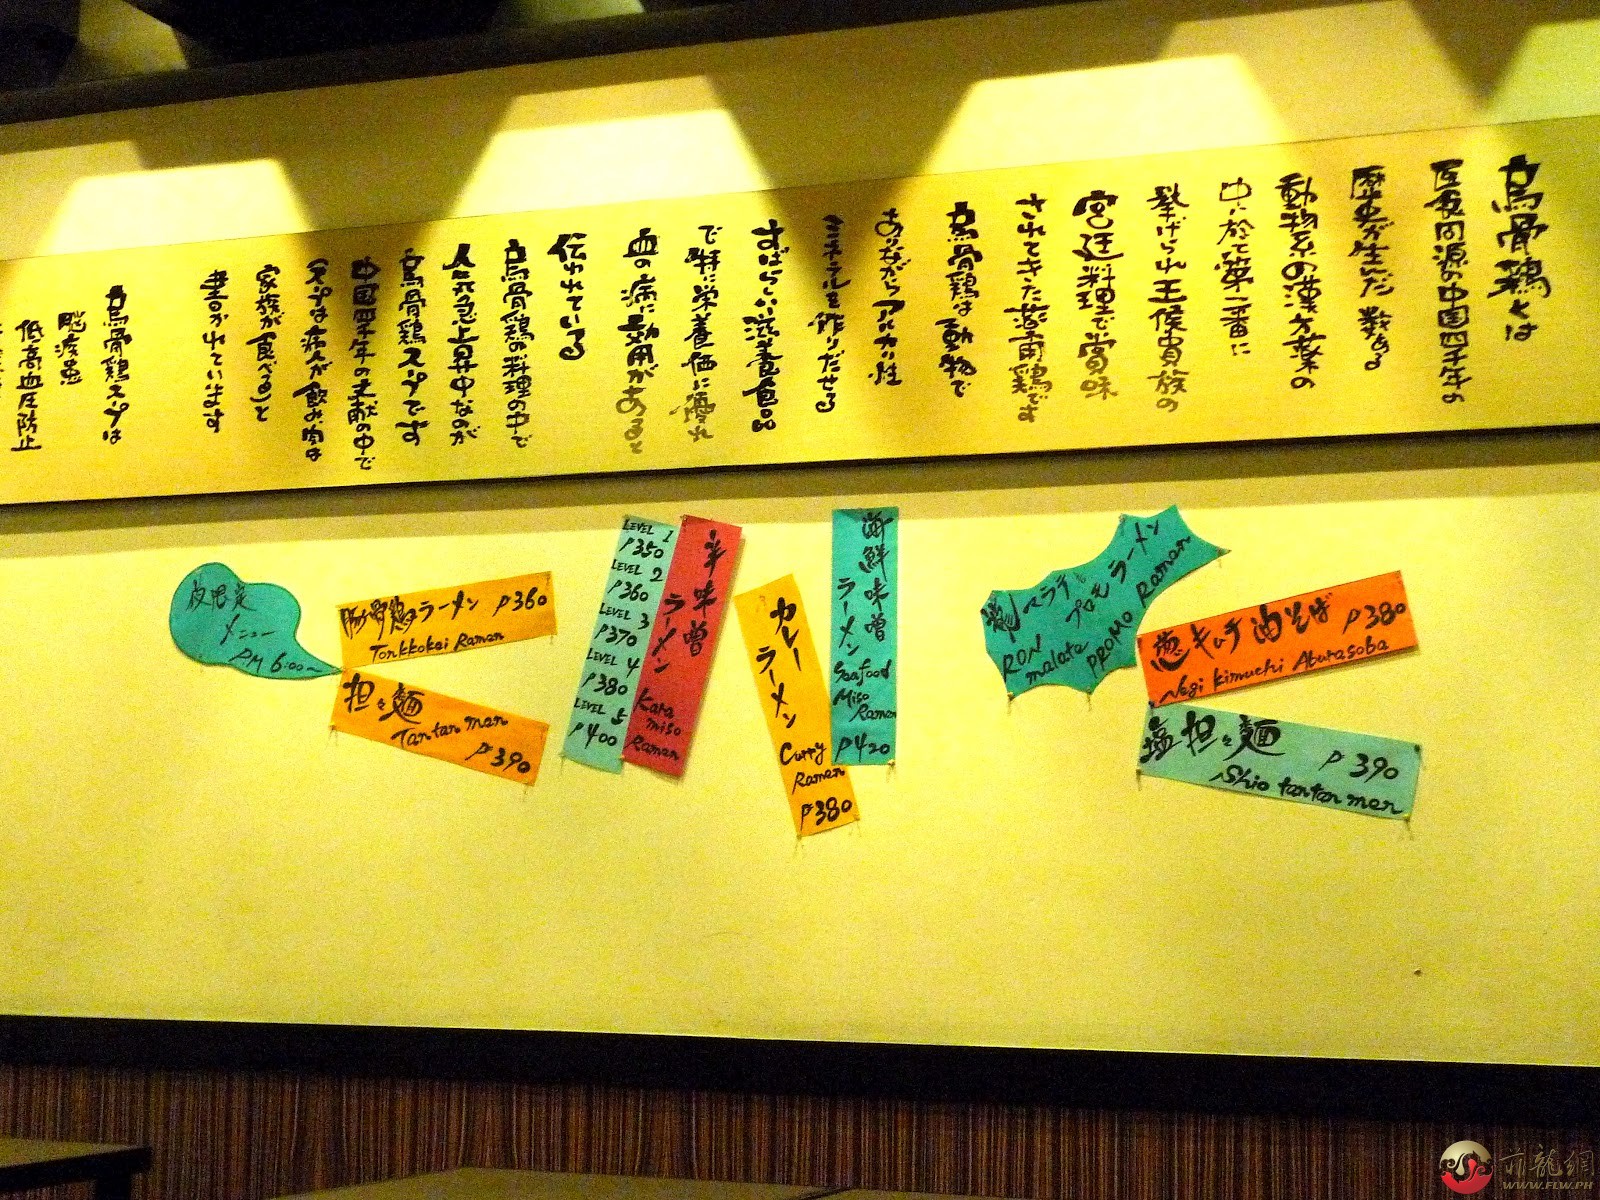 烏骨鶏とは
医食同源の中国四千年の
歴史が生んだ数ある
動物系の漢方薬の
中に於て第一番に
挙げられ王侯貴族の
宮廷料理で賞味
されてきた薬用鶏です
烏骨鶏は動物で
ありながらアルカリ性
ミネラルを作りだせる
すばらしい滋養食品
で特に栄養価に優れ
血の病に効用があると
伝われている
烏骨鶏の料理の中で
人気急上昇中なのが
烏骨鶏スープです
中国四千年の文献の中で
(スープは病人が飲み肉は
家族が食べる)と
書かれています
烏骨鶏スープは
低高血圧防止
夜限定
メニュー
PM 6:00~
豚骨鶏ラーメン ₱360
Tonkkokei Ramen
担々麺
Tantan men
₱390
LEVEL 1
₱350
LEVEL 2
₱360
LEVEL 3
₱370
LEVEL 4
₱380
LEVEL 5
₱400
辛味噌
ラーメン
Kara
miso
Ramen
カレー
ラーメン
Curry
Ramen
₱380
海鮮味噌
ラーメン
Seafood
Miso
Ramen
₱420
マラテ
プロモ ラーメン
RON
malate
PROMO Ramen
葱キムチ油そば ₱380
Negi Kimuchi Aburasoba
塩担々麺 ₱390
Shio tantan men
WWW.FLW.PH